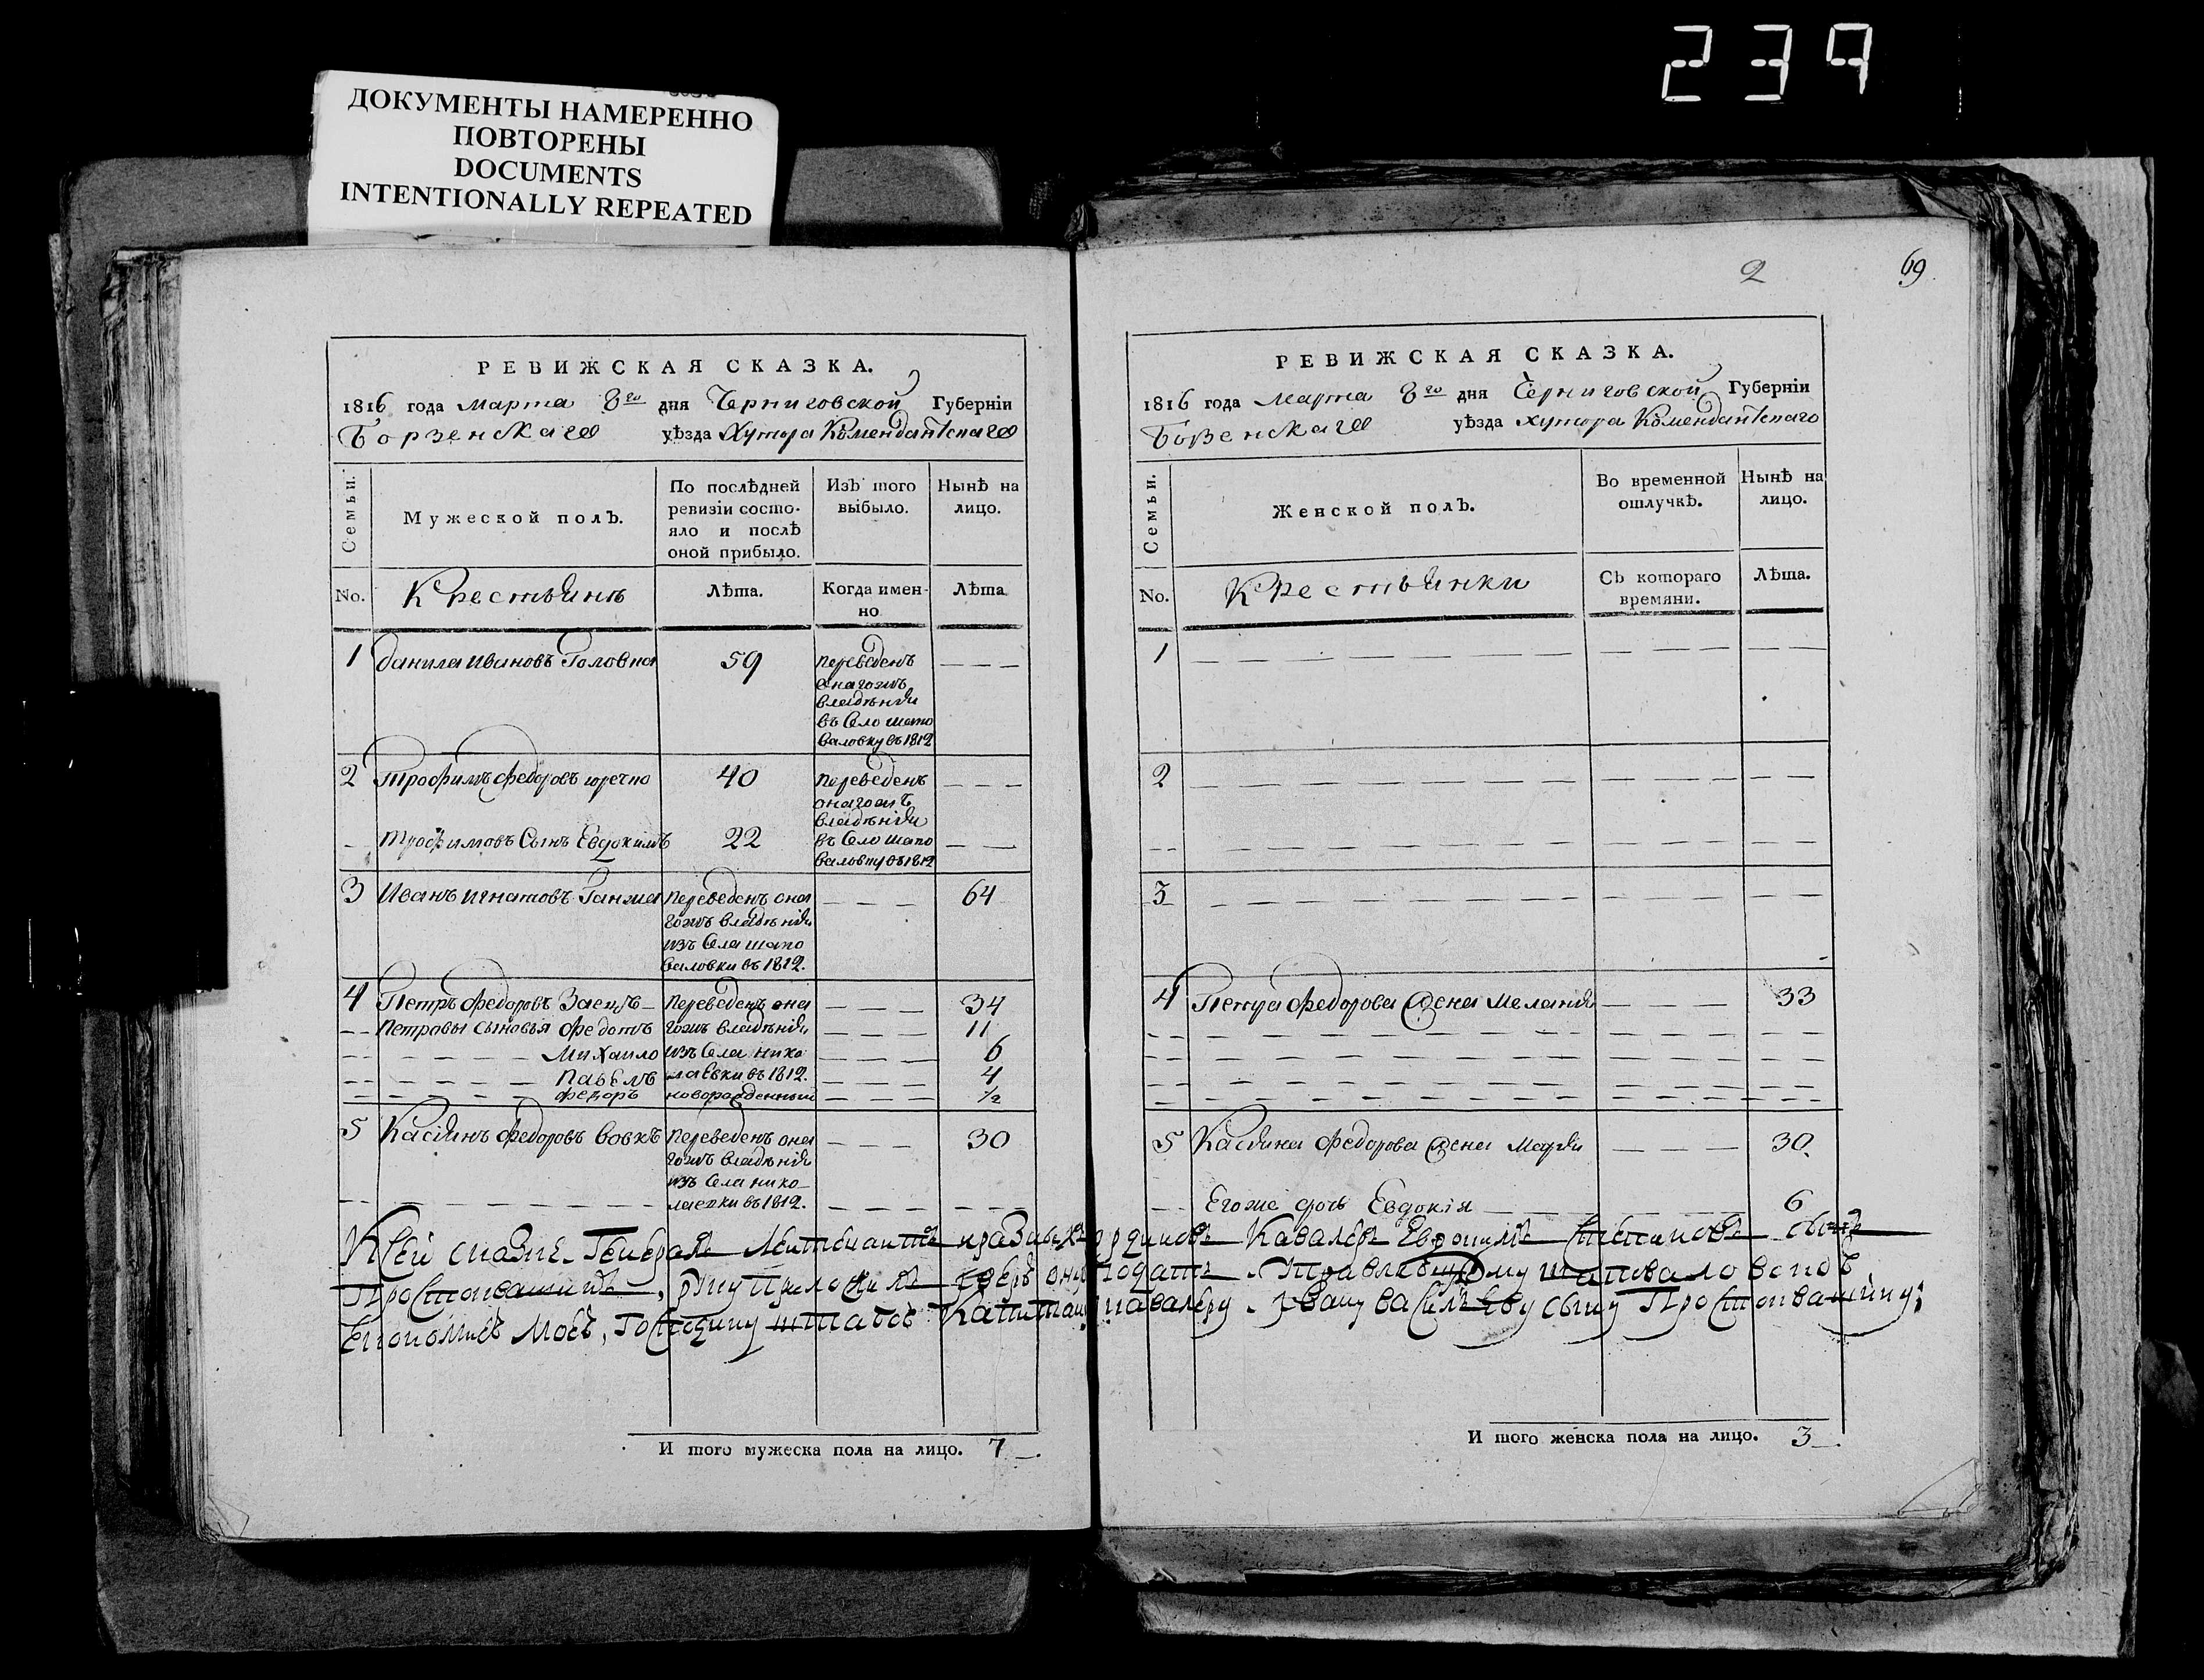 239
ДОКУМЕНТЫ НАМЕРЕННО
ПОВТОРЕНЫ
DOCUMENTS
INTENTIONALLY REPEATED
РЕВИЖСКАЯ СКАЗКА.
1816 года марта 8го дня Черниговской Губерніи
Борзенскаго уѣзда Хутора Комендантскаго
Семьи.
Мужеской полъ.
По послѣдней
ревизіи состо-
яло и послѣ
оной прибыло.
Изъ того
выбыло.
Нынѣ на
лицо.
No. Крестьянъ Лѣта. Когда имен-
но Лѣта
1 данила Ивановъ Головня 59 переведенъ — — —
онагожъ
владѣнія
въ Село шапо
валовку въ 1812
2 Трофимъ Федоровъ 40 переведенъ — — —
онагожъ
владѣнія
— Трофимовъ Сынъ Евдокимъ 22 въ Село шапо — —
валовку въ 1812
3 Иванъ Игнатовъ Ганжа переведенъ она — — — 64
гожъ владѣнія
изъ Села шапо
валовки въ 1812.
4 Петръ Федоровъ Заецъ — переведенъ она — — — 34
— — Петровы сыновья Федотъ гожъ владѣнія — — — 11
— — — — — — — Михаило изъ Села нико — — — 6
— — — — — — — Павелъ лаевки въ 1812. — — — 4
— — — — — — — Федоръ новорожденный — — — 1/2
5 Касіянъ Федоровъ Вовкъ переведенъ она — — — 30
гожъ владѣнія
изъ Села нико
лаевки въ 1812.
И того мужеска пола на лицо. 7
2 69
РЕВИЖСКАЯ СКАЗКА.
1816 года марта 8го дня Черниговской Губерніи
Борзенскаго уѣзда хутора Комендантскаго
Семьи.
Женской полъ.
Во временной
отлучкѣ.
Нынѣ на
лицо.
No. Крестьянки Съ котораго
времяни. Лѣта.
1 — — —
2 — — —
3 — — —
4 Петра Федорова жена Меланія — — — 33
5 Касіяна Федорова жена Марія — — — 30
Егоже дочь Евдокія 6
К сей сказке Генералъ Лейтенантъ и разныхъ орденовъ Кавалеръ Степановъ сынъ
руку приложилъ подать Управляющему шаповаловскою
Економіею моею, Господину штабсъ Капитану и кавалеру Ивану Васильеву сыну
И того женска пола на лицо. 3